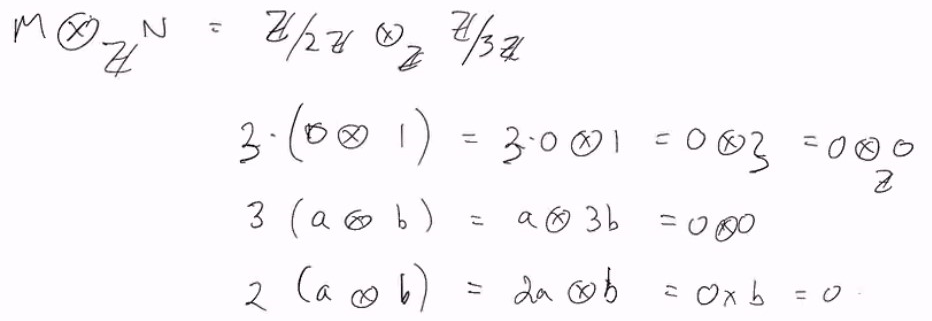 M ⊗_ℤ N = ℤ/2ℤ ⊗_ℤ ℤ/3ℤ
3·(0 ⊗ 1) = 3·0 ⊗ 1 = 0 ⊗ 3 = 0 ⊗_ℤ 0
3 (a ⊗ b) = a ⊗ 3b = 0 ⊗ 0
2 (a ⊗ b) = 2a ⊗ b = 0 × b = 0.